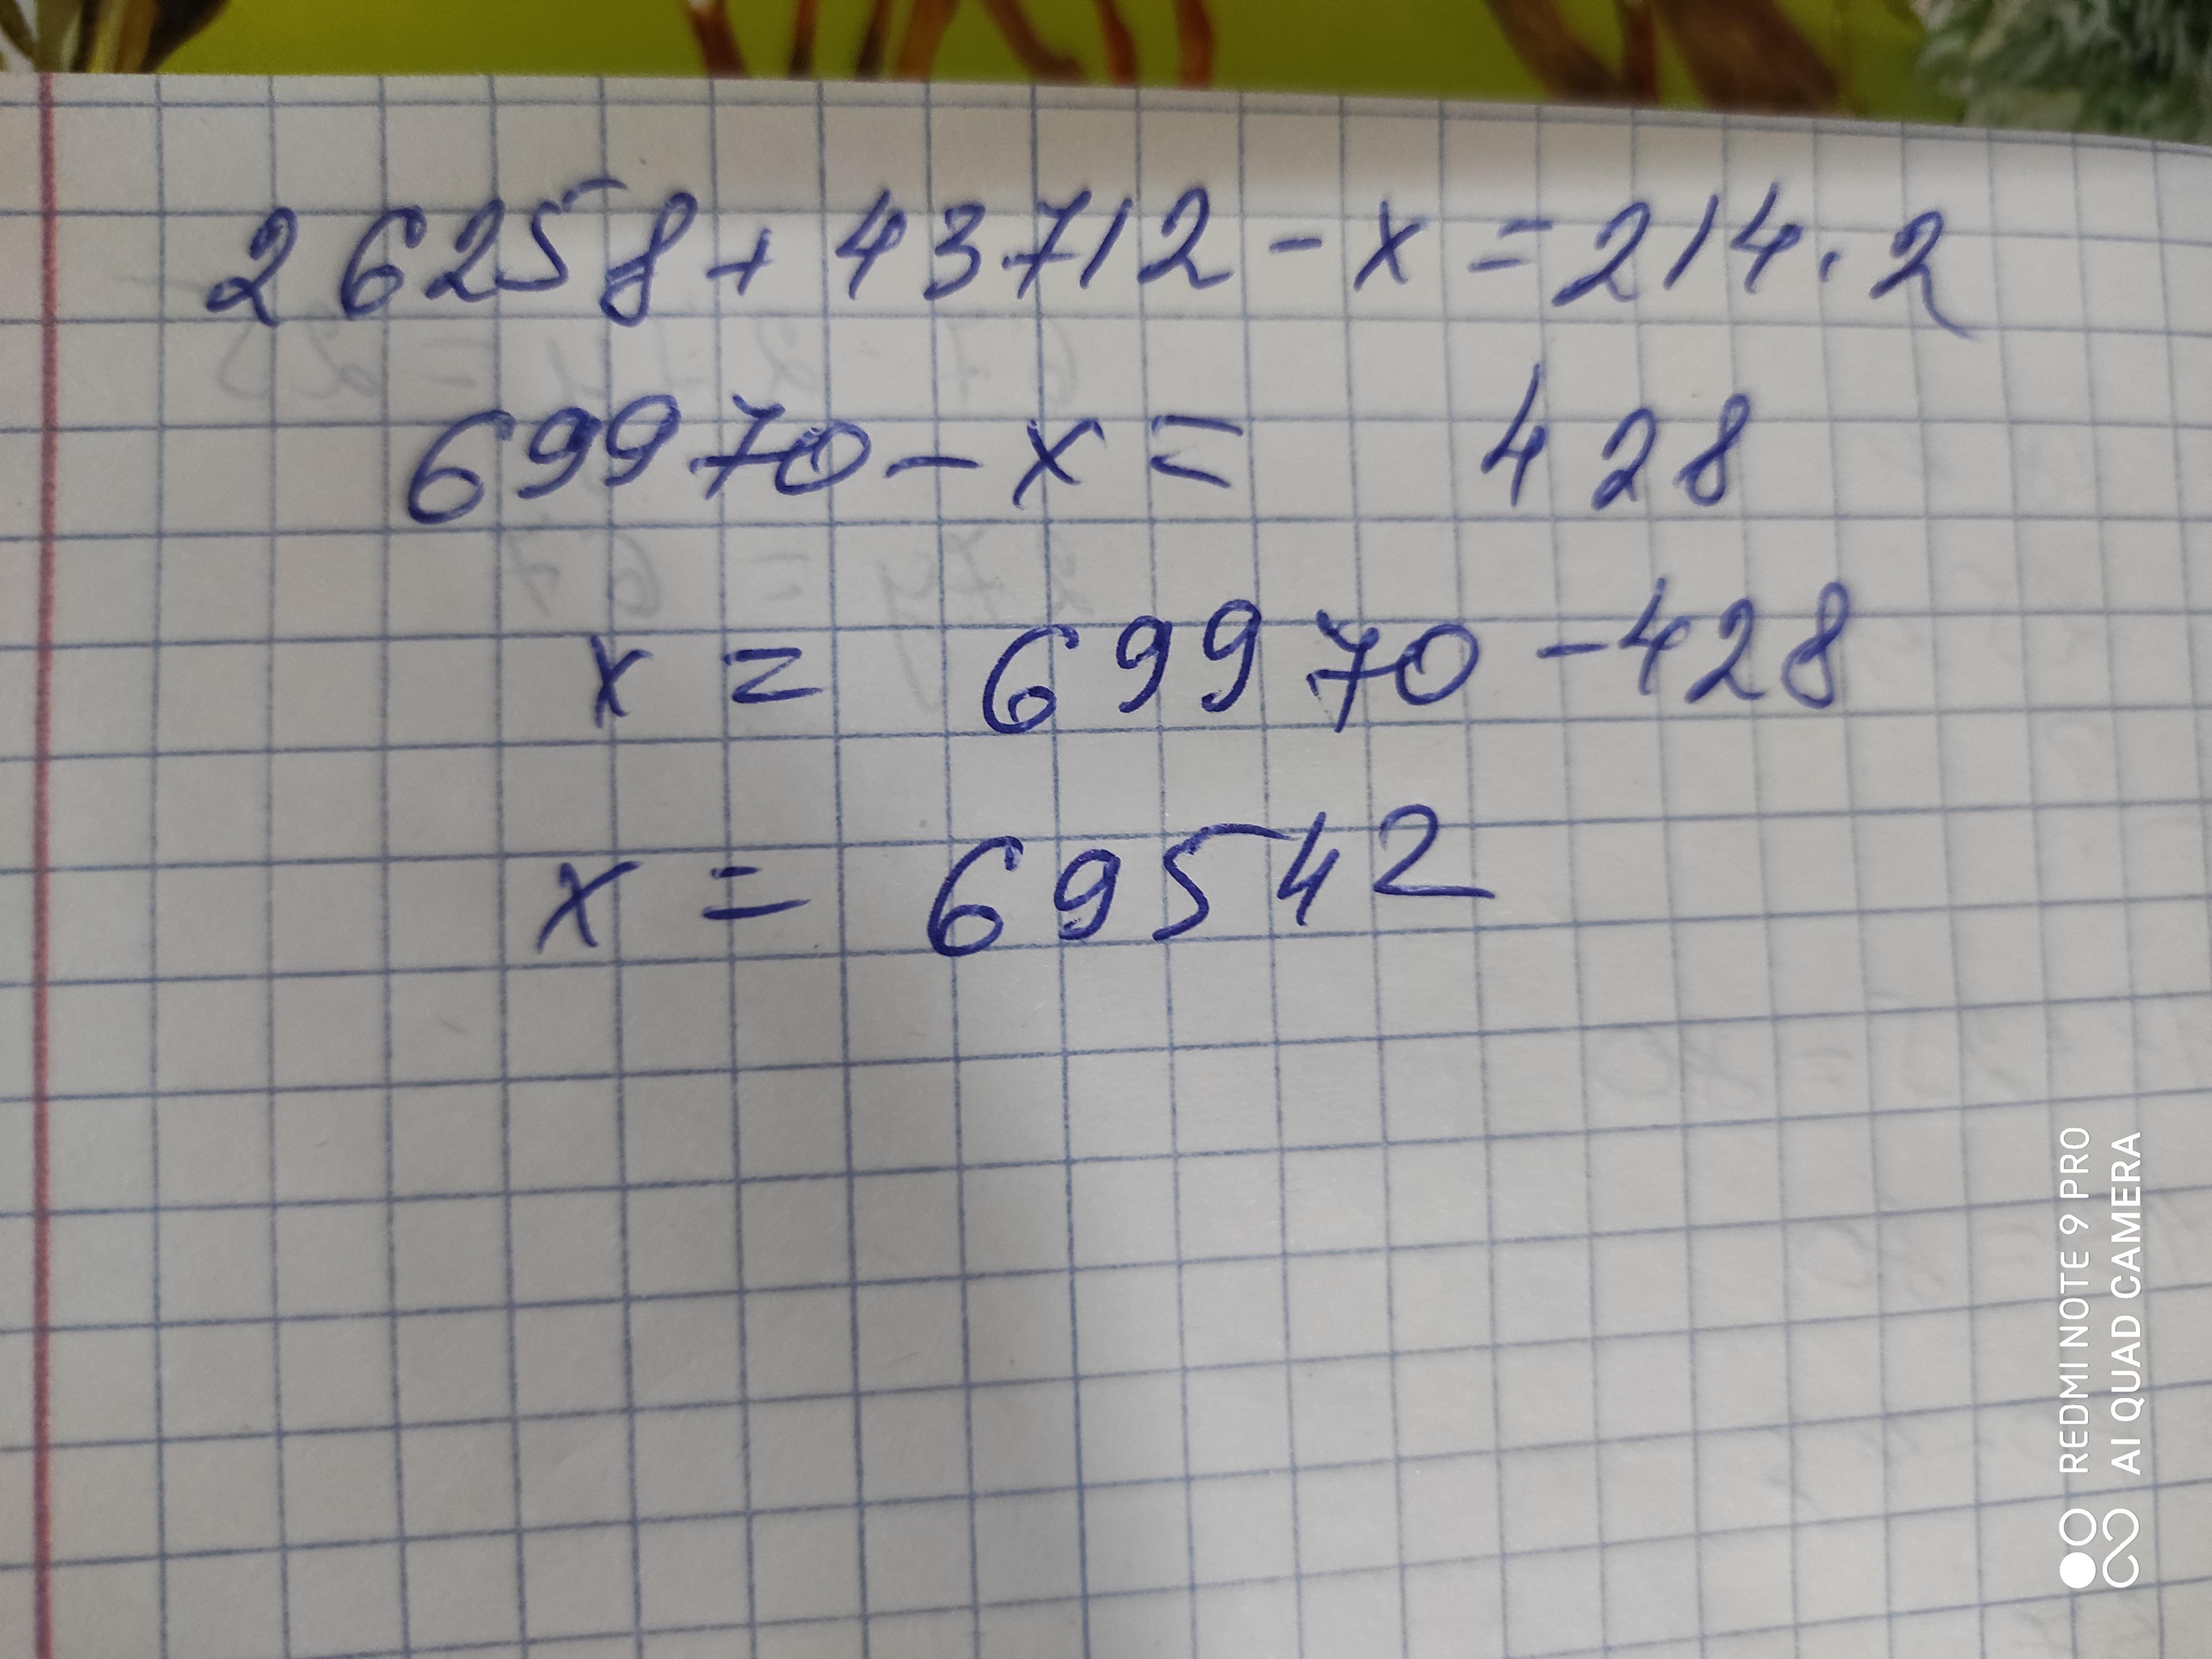 26258 + 43712 - x = 214 · 2
69970 - x = 428
x = 69970 - 428
x = 69542
REDMI NOTE 9 PRO
AI QUAD CAMERA